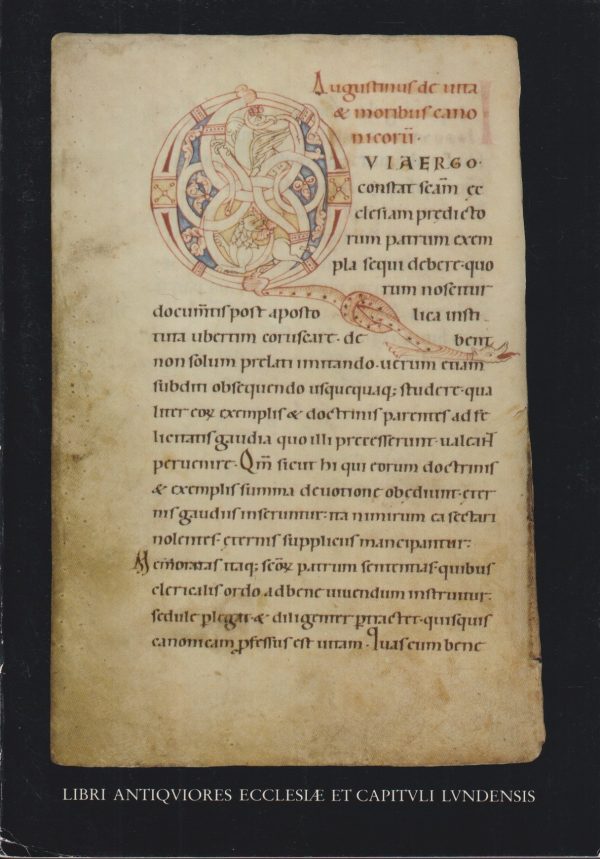 Augustinus de uita
& moribus cano
nicorū.
QVIAERGO.
constat scām ec
clesiam predicto
rum patrum exem
pla sequi debere. quo
rum noscitur
documtis post aposto lica insti
tuta ubertim coruscare. de bent
non solum prelati imitando. uerum etiam
subditi obsequendo usquequaq; studere. qua
liter eoꝝ exemplis & doctrinis parentes ad fe
licitatis gaudia quo illi precesserunt. ualeant
peruenire. Qm̄ sicut hi qui eorum doctrinis
& exemplis summa deuotione obediunt. eter
nis gaudiis inseruntur. ita nimirum ea sectari
nolentes. eternis suppliciis mancipantur.
Memoratas itaq; scōꝝ patrum sententias. quibus
clericalis ordo ad bene uiuendum instruitur.
sedule ꝑlegat. & diligenter ꝑtractet. quisquis
canonicam ꝓfessus est uitam. Quas cum bene
LIBRI ANTIQVIORES ECCLESIÆ ET CAPITVLI LVNDENSIS